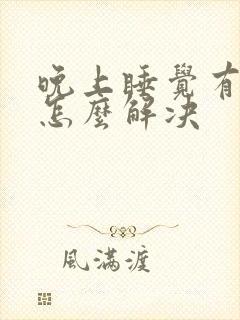 晚上睡覺有
怎麼解决
風满渡